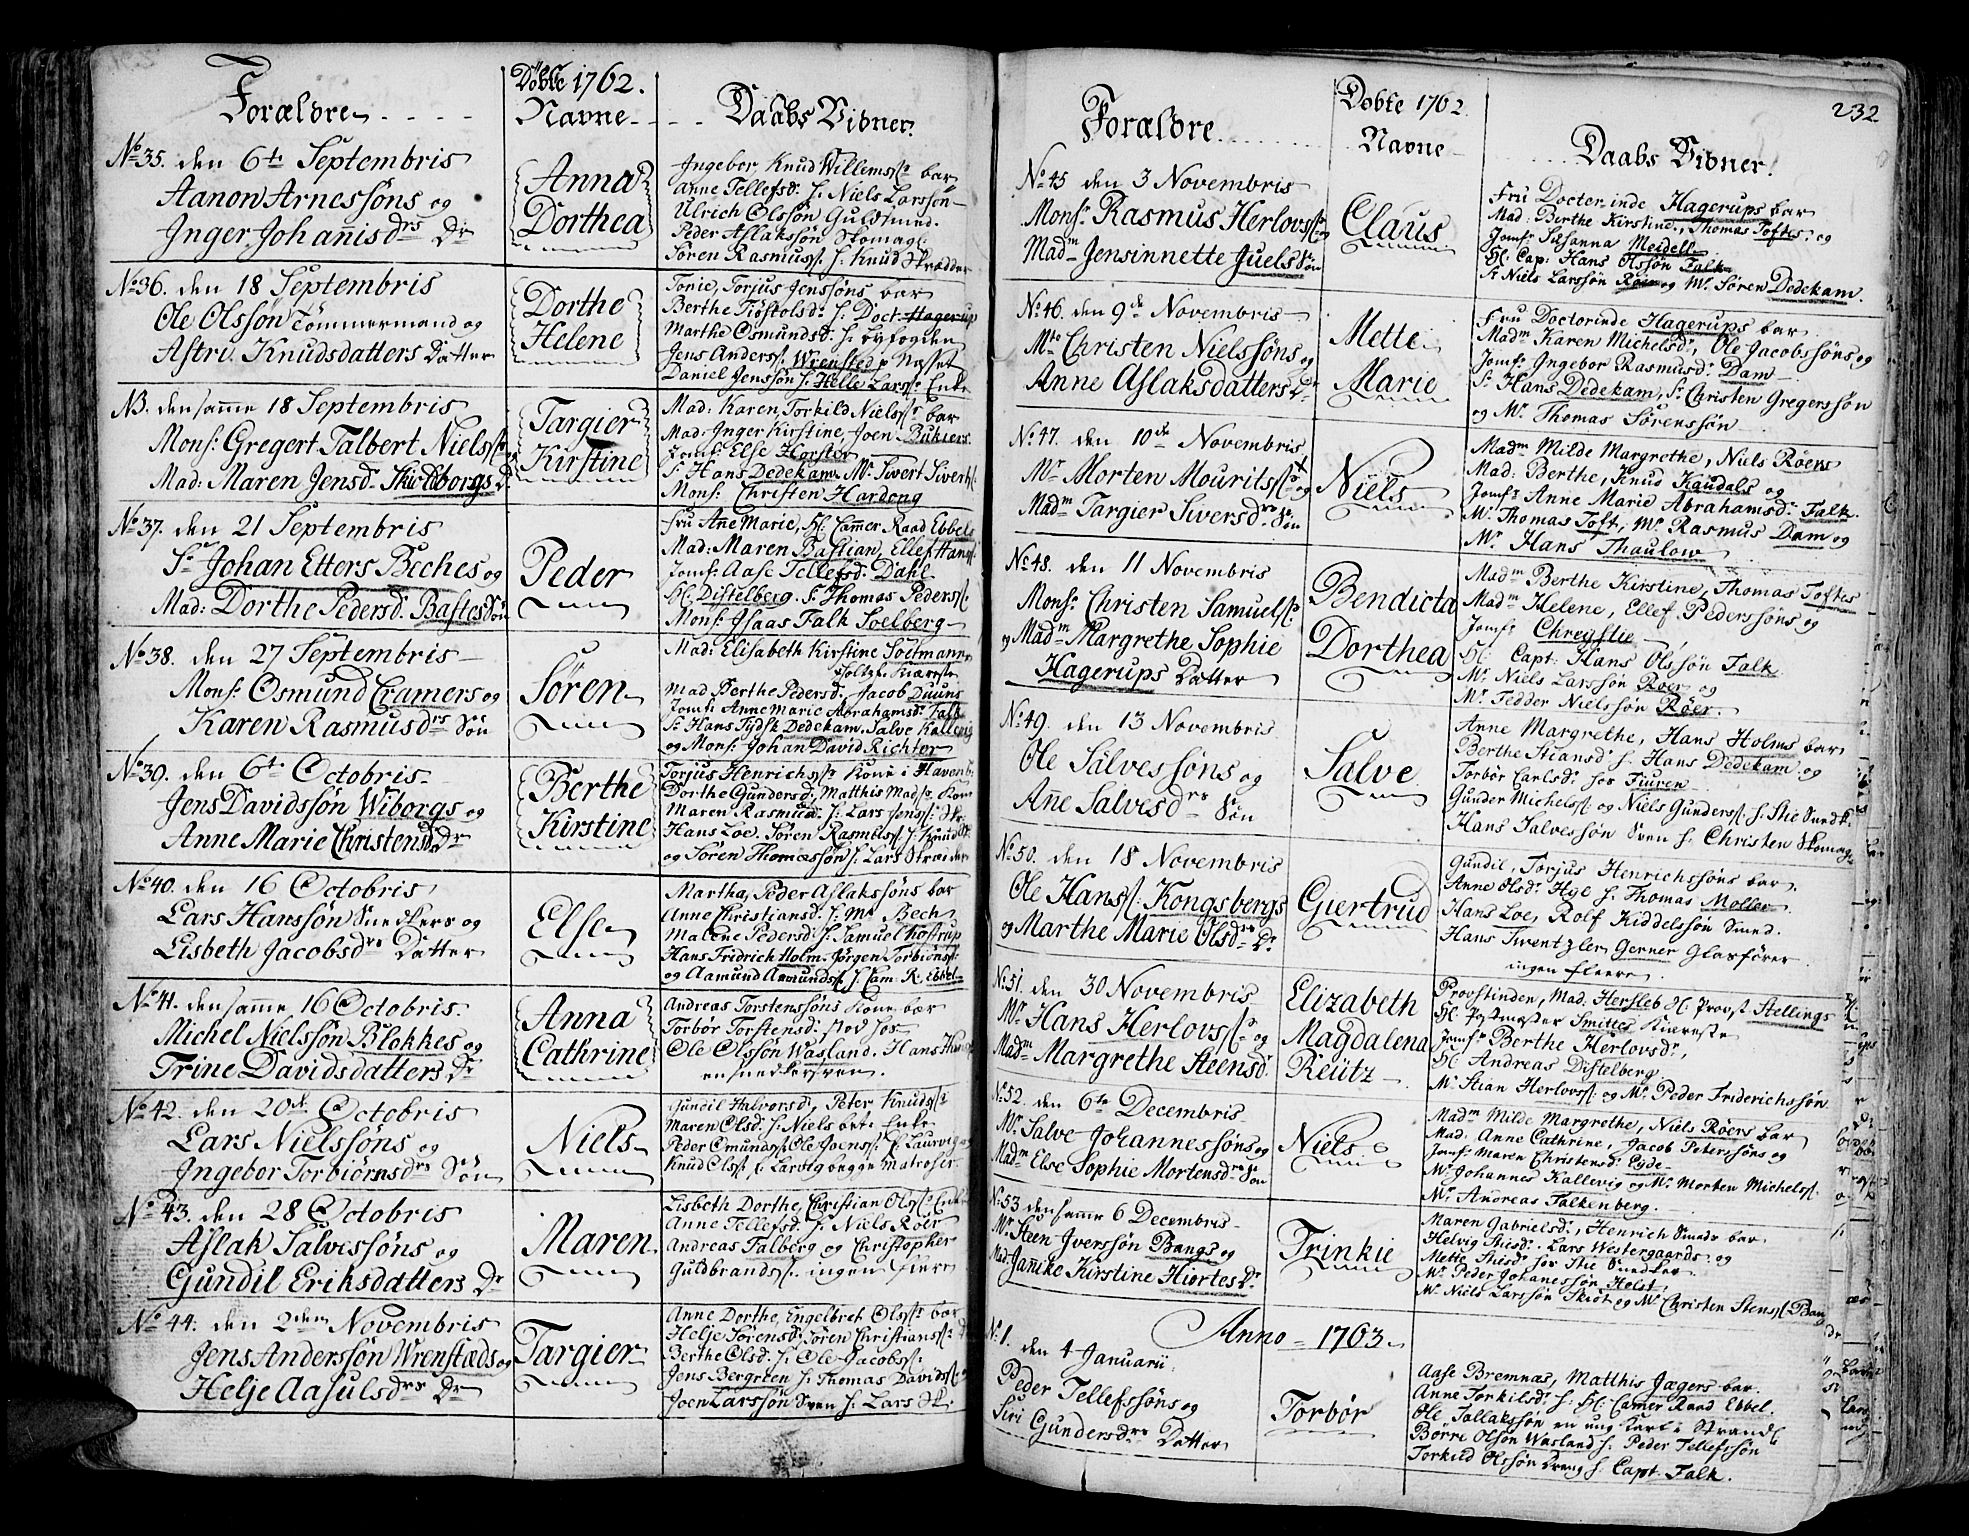 Forældre
Døbte 1762.
Navne
Daabs Vidner.
No 35. den 6te Septembris
Aanon Arnessøns og
Inger Johannisdrs Dr
Anna
Dorthea
Ingebor, Knud Willemss: bar
Anne Tellefsd: h: Niels Larssøn
Ulrich Olssøn Guldsmed.
Peder Aslakssøn Skomag:
Søren Rasmuss: h: Knud Skrædder
No 36. den 18 Septembris
Ole Olssøn Tømmermand og
Astri Knudsdatters Datter
Dorthe
Helene
Torie, Torjus Jenssøns bar
Berthe Tiøstolsd: h: Doct: Hagerup
Marthe Osmundsd: h: byfogden
Jens Anderss: Wrensted p Næsset
Daniel Jenssøn h: Helle Larss: Enke
NB. den samme 18 Septembris
Mons: Gregert Talbert Nielss: og
Mad: Maren Jensd: Skieborgs D:
Targier
Kirstine
Mad: Karen, Torkild Nielss: bar
Mad: Inger Kirstine, Joen Bukiers
Jomf: Else Horster
Sr Hans Dedekam, Mr Sivert Siverts:
Mons: Christen Hardong
No 37. den 21 Septembris
Sr Johan Etters Beches og
Mad: Dorthe Pedersd: Bastes Søn
Peder
Fru Anne Marie, Hl: Cammer Raad Ebbels
Mad: Maren Bastian, Ellef Hans:
Jomf: Aase Tellefsd: Dahl
Hl: Distelberg. Sr Thomas Peders:
Mons: Isaas Falk Soelberg
No 38. den 27 Septembris
Mons: Osmund Cramers og
Karen Rasmusdrs Søn
Søren
Mad: Elisabeth Kirstine Soetmanns
Tholtzf: Kiæreste
Mad Berthe Pedersd: Jacob Duuns
Jomf: Anne Marie Abrahamsd: Falk
Sr Hans Tydsk Dedekam, Salve Kallevig
og Mons: Johan David Richter
No 39. den 6te Octobris
Jens Davidssøn Wiborgs og
Anne Marie Christensd: Dr
Berthe
Kirstine
Torjus Henrichss: Kone i Havenb.
Dorthe Gundersd: Matthis Mads: Kone
Maren Rasmusd: h: Lars Jenss: Sk:
Hans Loe, Søren Rasmuss: h: Knud Sk:
og Søren Thomassøn h: Lars Strander
No 40. den 16 Octobris
Lars Hanssøn Snedkers og
Lisbeth Jacobsdrs Datter
Else
Martha, Peder Aslakssøns bar
Anne Christiansd: h: Mr Bech
Malene Pedersd: h: Samuel Hostrup
Hans Fridrich Holm, Jørgen Torbiøns:
og Aamund Aamunds: h: Cam: R: Ebbel
No 41. den samme 16 Octobris.
Michel Nielssøn Blokkes og
Trine Davidsdatters Dr
Anna
Cathrine
Andreas Torstenssøns Kone bar
Torbør Torstensd: stod hos
Ole Olssøn Wasland. Hans
en snedkersven.
No 42. den 20de Octobris
Lars Nielssøns og
Ingebor Torbiørnsdrs Søn
Niels
Gundil Halvorsd:, Peter Knuds:
Maren Olsd: h: Niels Enke
Peder Omunds: Ole Joens: f: Laurvig og
Knud Ols: f: Larvig begge matroser.
No 43. den 28 Octobris
Aslak Salvessøns og
Gundil Eriksdatters Dr
Maren
Lisbeth Dorthe, Christian Ols: Enke
Anne Tellefsd: h: Niels Roer
Andreas Falberg og Christopher
Guldbrands: ingen fiere
No 44: den 2den Novembris
Jens Anderssøn Wrenstæds og
Helje Aasulsdrs Dr
Targier
Anne Dorthe, Engelbret Ols: bar
Helje Sørensd: Søren Christians:
Berthe Olsd: h: Ole Jacobs:
Jens Bergreen h: Thomas Davids:
Joen Larssøn Sven h: Lars Sk:
232
Forældre
Døbte 1762.
Navne
Daabs Vidner.
No 45 den 3 Novembris
Mons: Rasmus Herlovs: og
Madm Jensinnette Juels Søn
Claus
Fru Docterinde Hagerups bar
Mad: Berthe Kirstine, Thomas Toftes og
Jomf: Susanna Meidell
Hl: Cap: Hans Olssøn Falk
Sr Niels Larssøn Röer og Mr Søren Dedekam
No 46. den 9de Novembris
Mr Christen Nielssøns og
Anne Aslaksdatters Dr
Mette
Marie
Fru Doctorinde Hagerups bar
Madm Karen Michelsd:, Ole Jacobssøns og
Jomf: Ingebor Rasmusd: Dam
Sr Hans Dedekam, Sr Christen Gregerssøn
og Mr Thomas Sørenssøn
No 47. den 10de Novembris
Mr Morten Mourits: og
Madm Targier Siversdrs Søn
Niels
Madm Milde Margrethe, Niels Röers
Mad: Berthe, Knud Kaudals og
Jomfr Anne Marie Abrahamsd: Falk
Mr Thomas Toft, Mr Rasmus Dam og
Mr Hans Thaulow
No 48. den 11 Novembris
Mons: Christen Samuels:
og Madm Margrethe Sophie
Hagerups Datter
Bendicta
Dorthea
Madm Berthe Kirstine, Thomas Toftes
Madm Helene, Ellef Pederssøns og
Jomf: Chrystie
Hl: Capt: Hans Olssøn Falk
Mr Niels Larssøn Roer og
Mr Tedder Nielssøn Röer.
No 49. den 13 Novembris
Ole Salvessøns og
Anne Salvesdrs Søn
Salve
Anne Margrethe, Hans Holms bar
Berthe Stiansd: h: Hans Dedekam og
Torbør Carlsd: hos Fiuren
Gunder Michels: og Niels Gunders: h: Stie Snedk:
Hans Salvessøn Sven h: Christen Skomag:
No 50. den 18 Novembris
Ole Hans: Kongsbergs
og Marthe Marie Olsdrs Dr
Giertrud
Gundil, Torjus Henrichssøns bar.
Anne Olsd: Hye h: Thomas Moller
Hans Loe, Rolf Kiddelsøn Smed.
Hans Twentzler, Gerner Glasfører
ingen fleere.
No 51. den 30 Novembris
Mr Hans Herlovs: og
Madm Margrethe Steensd:
Elizabeth
Magdalena
Reütz
Provstinden, Mad: Hersleb Hl: Provst Stellings
Hl: Postmester Smittes Kiæreste
Jomfr Berthe Herlovsd:,
Hl: Andreas Distelberg.
Mr Stian Herlovs: og Mr Peder Friderichssøn
No 52. den 6te Decembris
Mr Salve Johannessøns og
Madm Else Sophie Mortensdrs Søn
Niels
Madm Milde Margrethe, Niels Röers bar
Mad: Anne Cathrine, Jacob Peterssøns og
Jomfr Maren Christensd: Eyde
Mr Johannes Kallevig og Mr Morten Michels:
Mr Andreas Falkenberg.
No 53 den samme 6 Decembris
Mr Steen Iverssøn Bangs og
Mad: Janike Kirstine Hiortes Dr
Trinkie
Maren Gabrielsd:, Henrich Smeds bar
Helvig Stiesd: Lars Westergaards og
Mette Stiesd: hos Stie Snedker
Mr Peder Johanessøn Holst
Mr Niels Larssøn Skiöt og Mr Christen Stens: Bang
Anno 1763.
No 1. den 4 Januarii
Peder Tellefssøns og
Siri Gundersdrs Datter
Torbør
Aase Bremnæs, Matthis Jægers bar.
Anne Torkilsd: h: Hl: Camer Raad Ebbel.
Ole Tallakssøn en ung Karl i Strande
Børre Olssøn Wasland h: Peder Tellefssøn
Torkild Olssøn Dreng h: Capt: Falk.